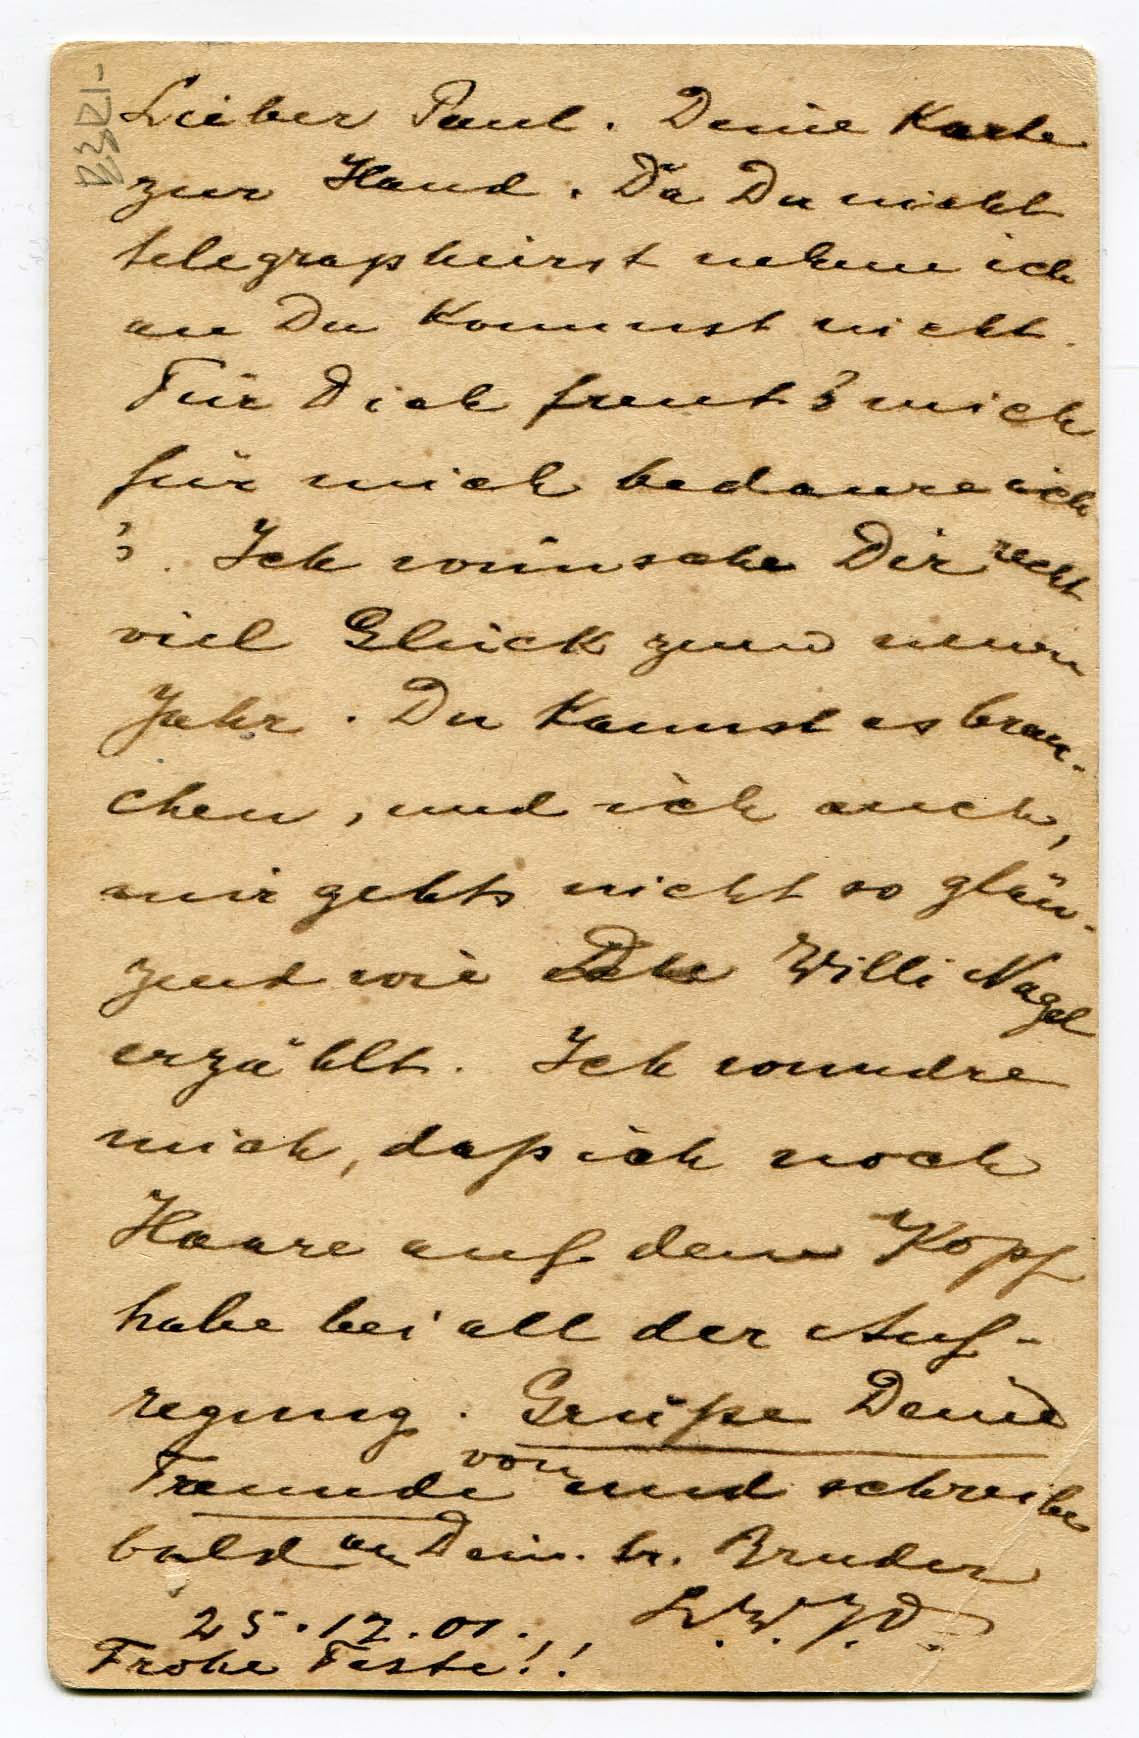 Lieber Paul. Deine Karte
zur Hand. Da Du nicht
telegraphierst nehme ich
an Du kommst nicht.
Für Dich freut's mich
für mich bedaure ich
's. Ich wünsche Dir recht
viel Glück zum neuen
Jahr. Du kannst es brau-
chen, und ich auch,
mir gehts nicht so glän-
zend wie Willi Nagel
erzählt. Ich wundre
mich, daß ich noch
Haare auf dem Kopf
habe bei all der Auf-
regung. Grüße Deine
Freunde von und schreibe
bald an Dein. tr. Bruder
L.W.J.V.
25.12.01.
Frohe Feste!!